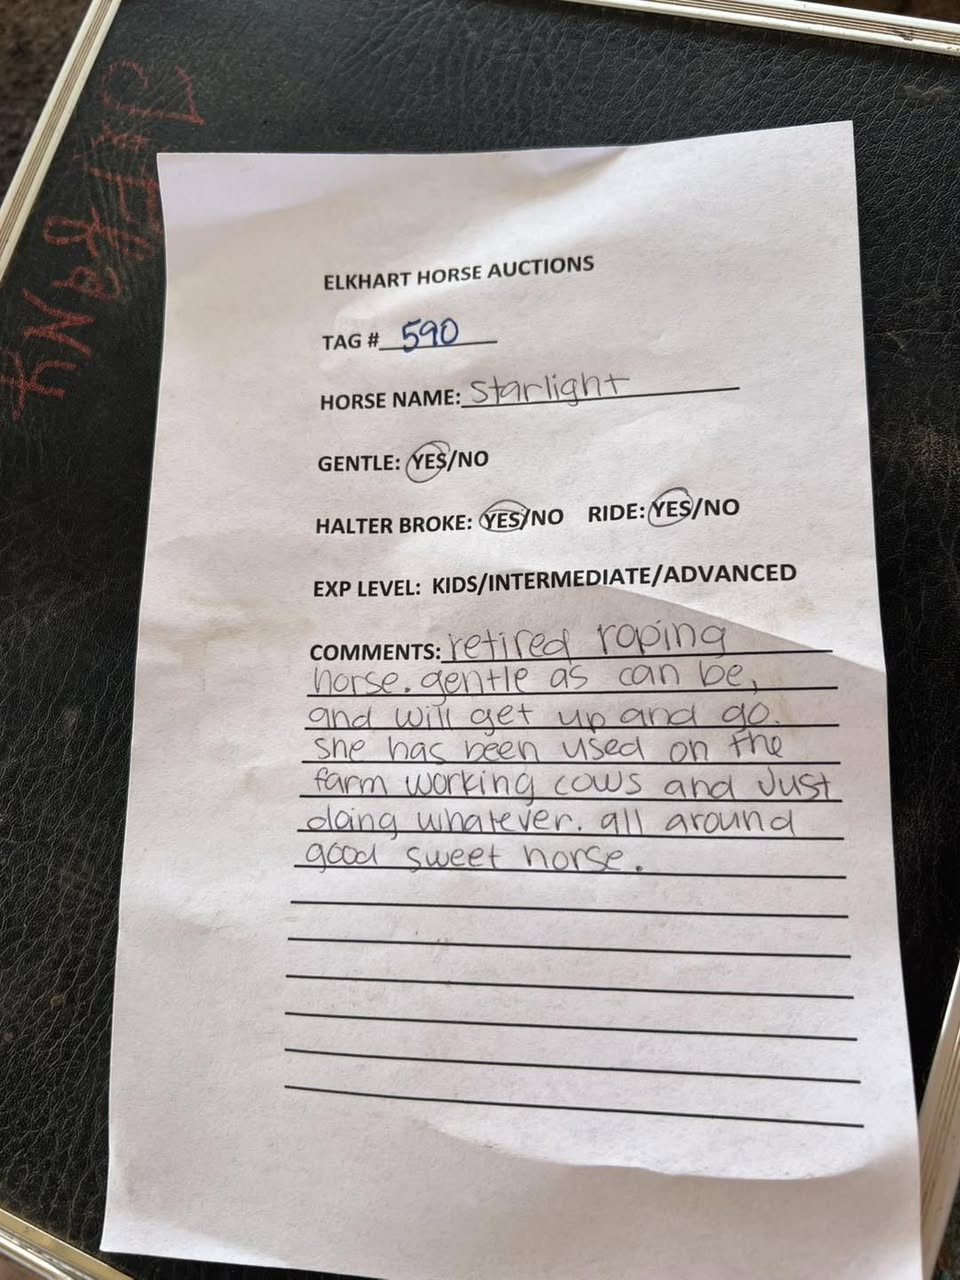 ELKHART HORSE AUCTIONS
TAG # 590
HORSE NAME: Starlight
GENTLE: YES/NO
HALTER BROKE: YES/NO RIDE: YES/NO
EXP LEVEL: KIDS/INTERMEDIATE/ADVANCED
COMMENTS: retired roping
horse. gentle as can be,
and will get up and go.
She has been used on the
farm working cows and Just
doing whatever. all around
good sweet horse.